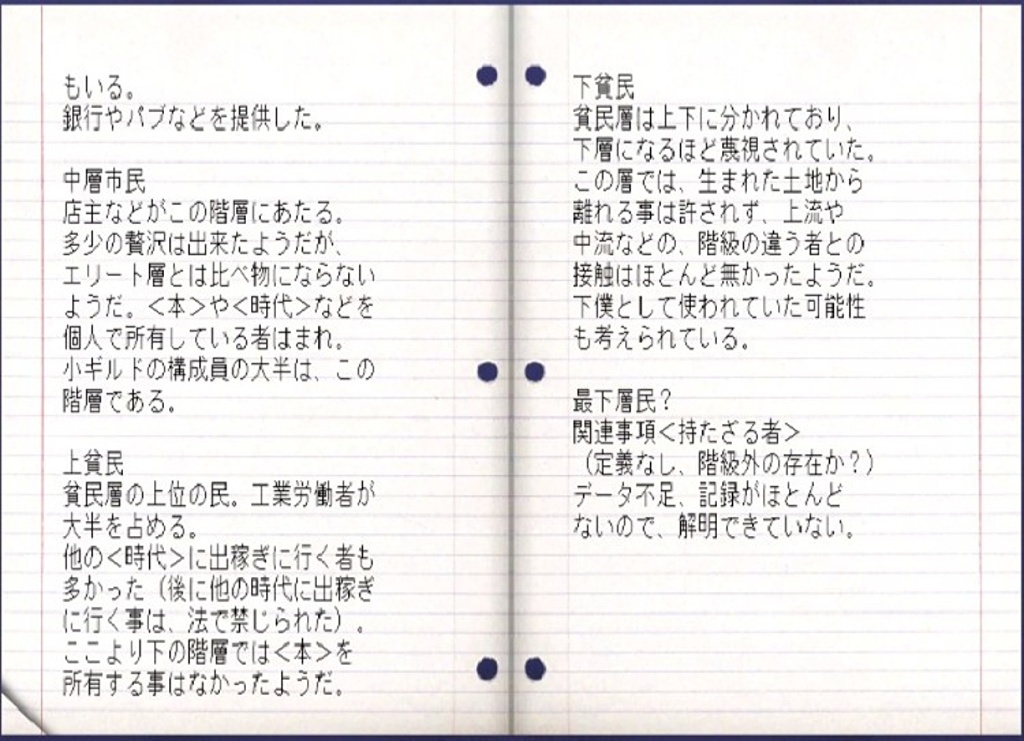 もいる。
銀行やパブなどを提供した。
中層市民
店主などがこの階層にあたる。
多少の贅沢は出来たようだが、
エリート層とは比べ物にならない
ようだ。＜本＞や＜時代＞などを
個人で所有している者はまれ。
小ギルドの構成員の大半は、この
階層である。
上貧民
貧民層の上位の民。工業労働者が
大半を占める。
他の＜時代＞に出稼ぎに行く者も
多かった（後に他の時代に出稼ぎ
に行く事は、法で禁じられた）。
ここより下の階層では＜本＞を
所有する事はなかったようだ。
下貧民
貧民層は上下に分かれており、
下層になるほど蔑視されていた。
この層では、生まれた土地から
離れる事は許されず、上流や
中流などの、階級の違う者との
接触はほとんど無かったようだ。
下僕として使われていた可能性
も考えられている。
最下層民？
関連事項＜持たざる者＞
（定義なし、階級外の存在か？）
データ不足、記録がほとんど
ないので、解明できていない。